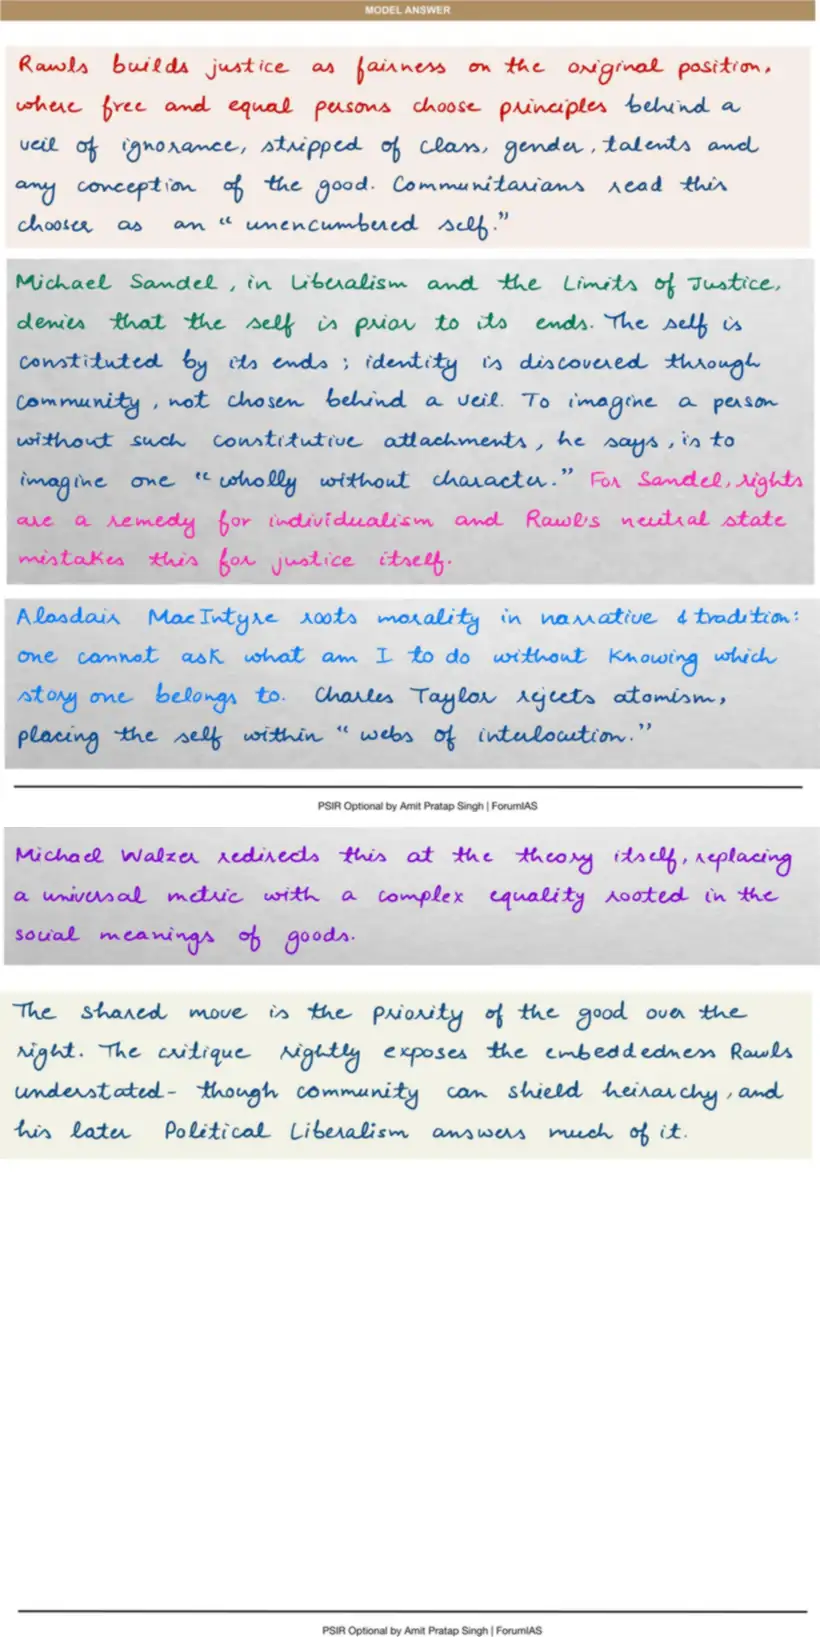 MODEL ANSWER
Rawls builds justice as fairness on the original position,
where free and equal persons choose principles behind a
veil of ignorance, stripped of class, gender, talents and
any conception of the good. Communitarians read this
chooser as an "unencumbered self."
Michael Sandel, in Liberalism and the Limits of Justice,
denies that the self is prior to its ends. The self is
constituted by its ends; identity is discovered through
community, not chosen behind a veil. To imagine a person
without such constitutive attachments, he says, is to
imagine one "wholly without character." For Sandel, rights
are a remedy for individualism and Rawl's neutral state
mistakes this for justice itself.
Alasdair MacIntyre roots morality in narrative & tradition:
one cannot ask what am I to do without knowing which
story one belongs to. Charles Taylor rejects atomism,
placing the self within "webs of interlocution."
PSIR Optional by Amit Pratap Singh | ForumIAS
Michael Walzer redirects this at the theory itself, replacing
a universal metric with a complex equality rooted in the
social meanings of goods.
The shared move is the priority of the good over the
right. The critique rightly exposes the embeddedness Rawls
understated- though community can shield heirarchy, and
his later Political Liberalism answers much of it.
PSIR Optional by Amit Pratap Singh | ForumIAS